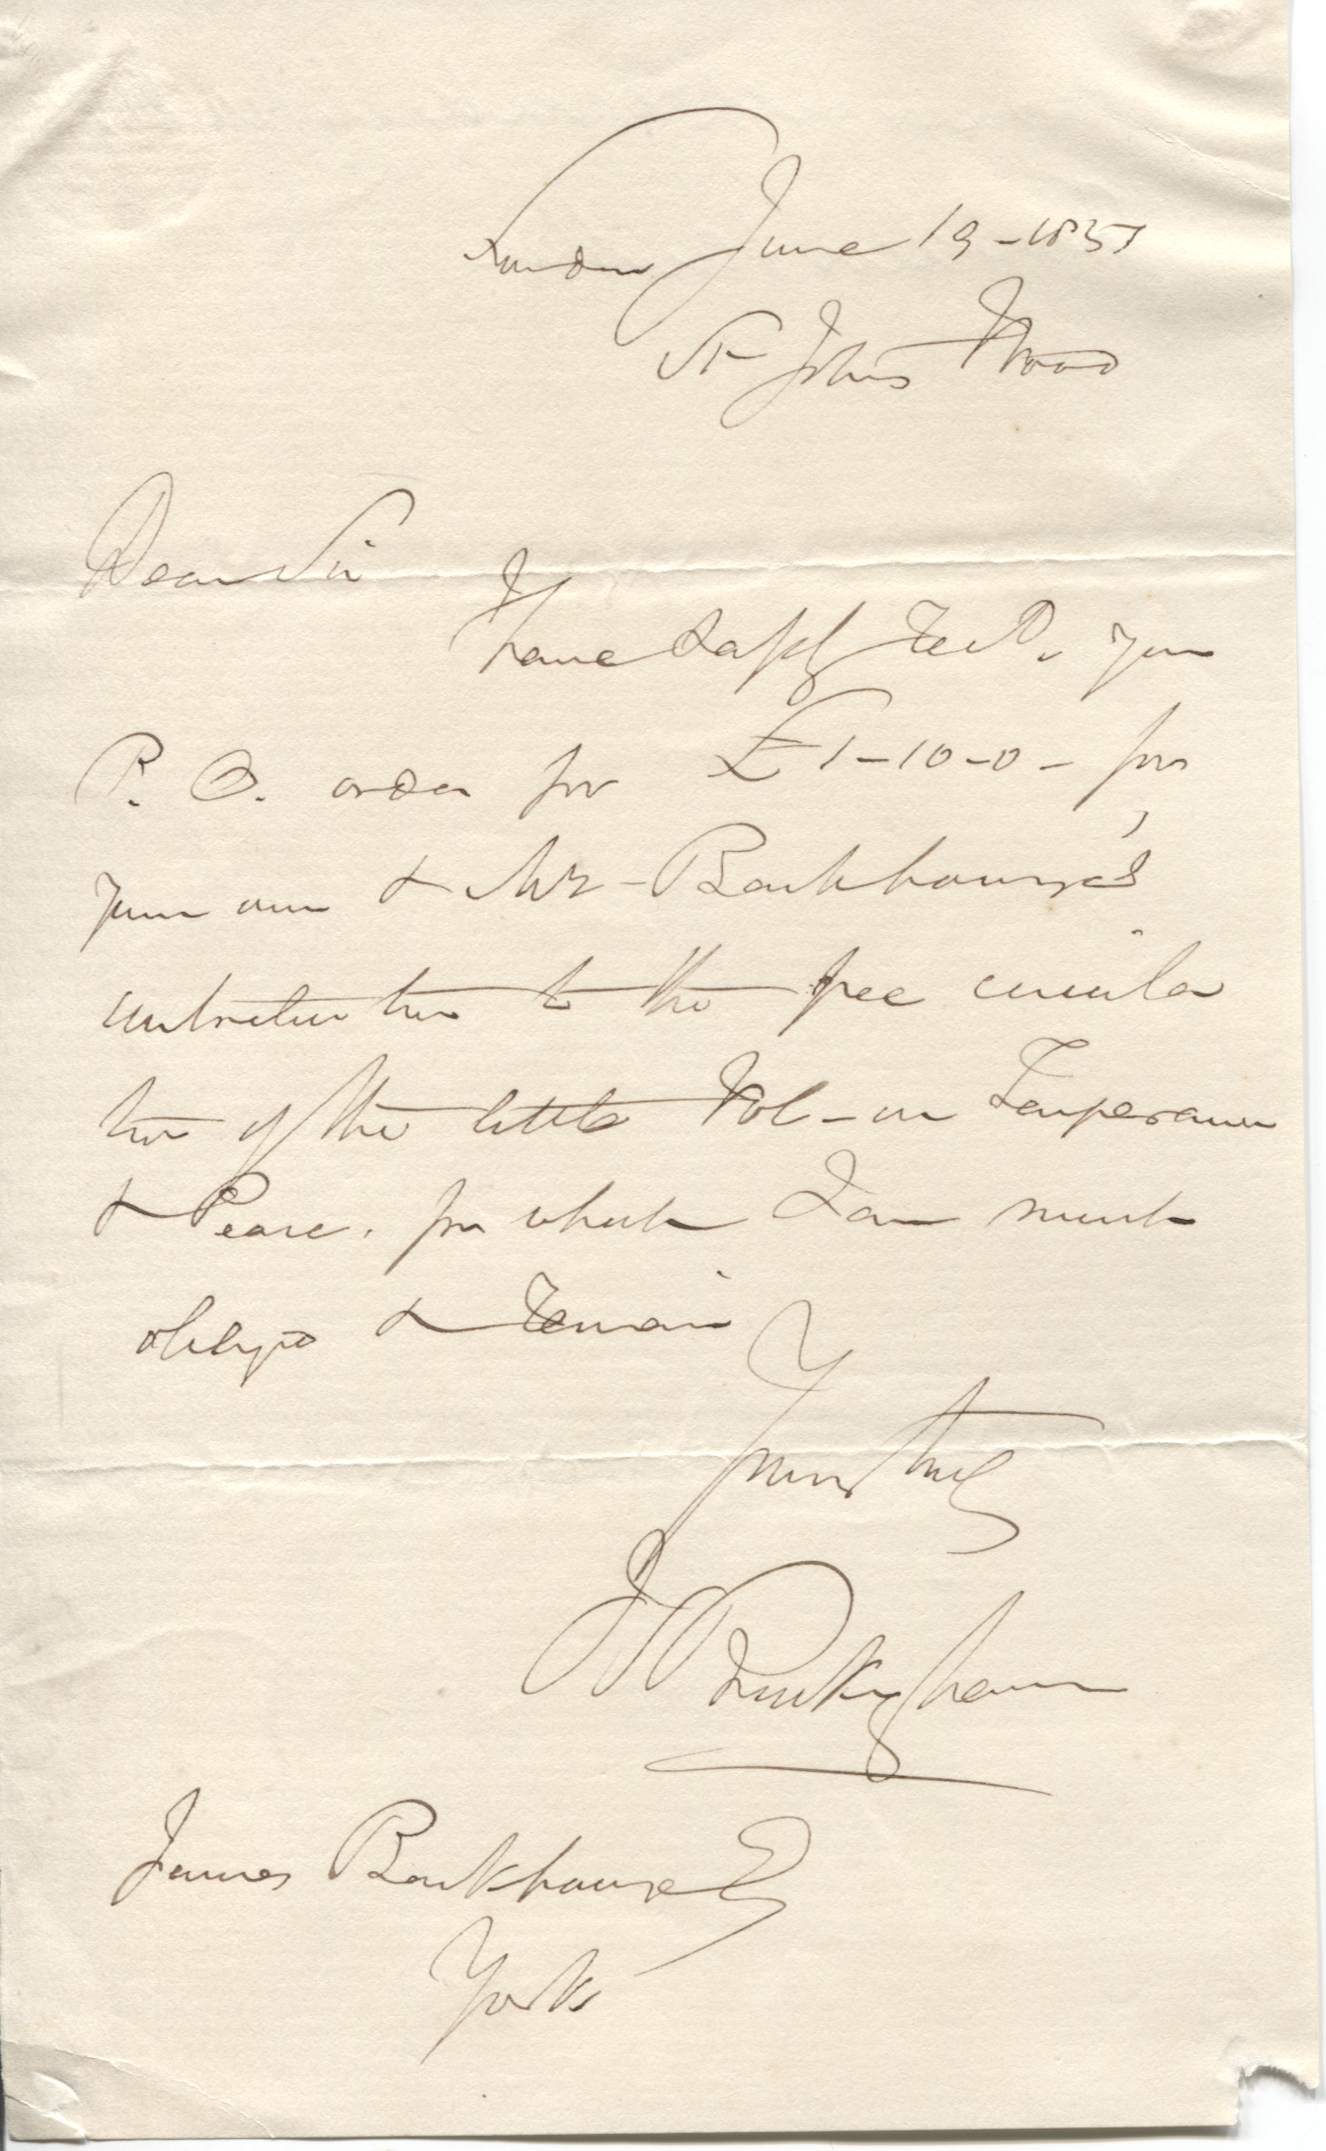 London June 19 - 1851
St Johns Wood
Dear Sir
I have safely recd. your
P. O. order for £1-10-0 - for
your own & Mr - Backhouse's
contribution to the free circula
tion of the little Vol - on Temperance
& Peace. for which I am much
obliged & remain
Yours truly
J S Buckingham
James Backhouse Esq
York